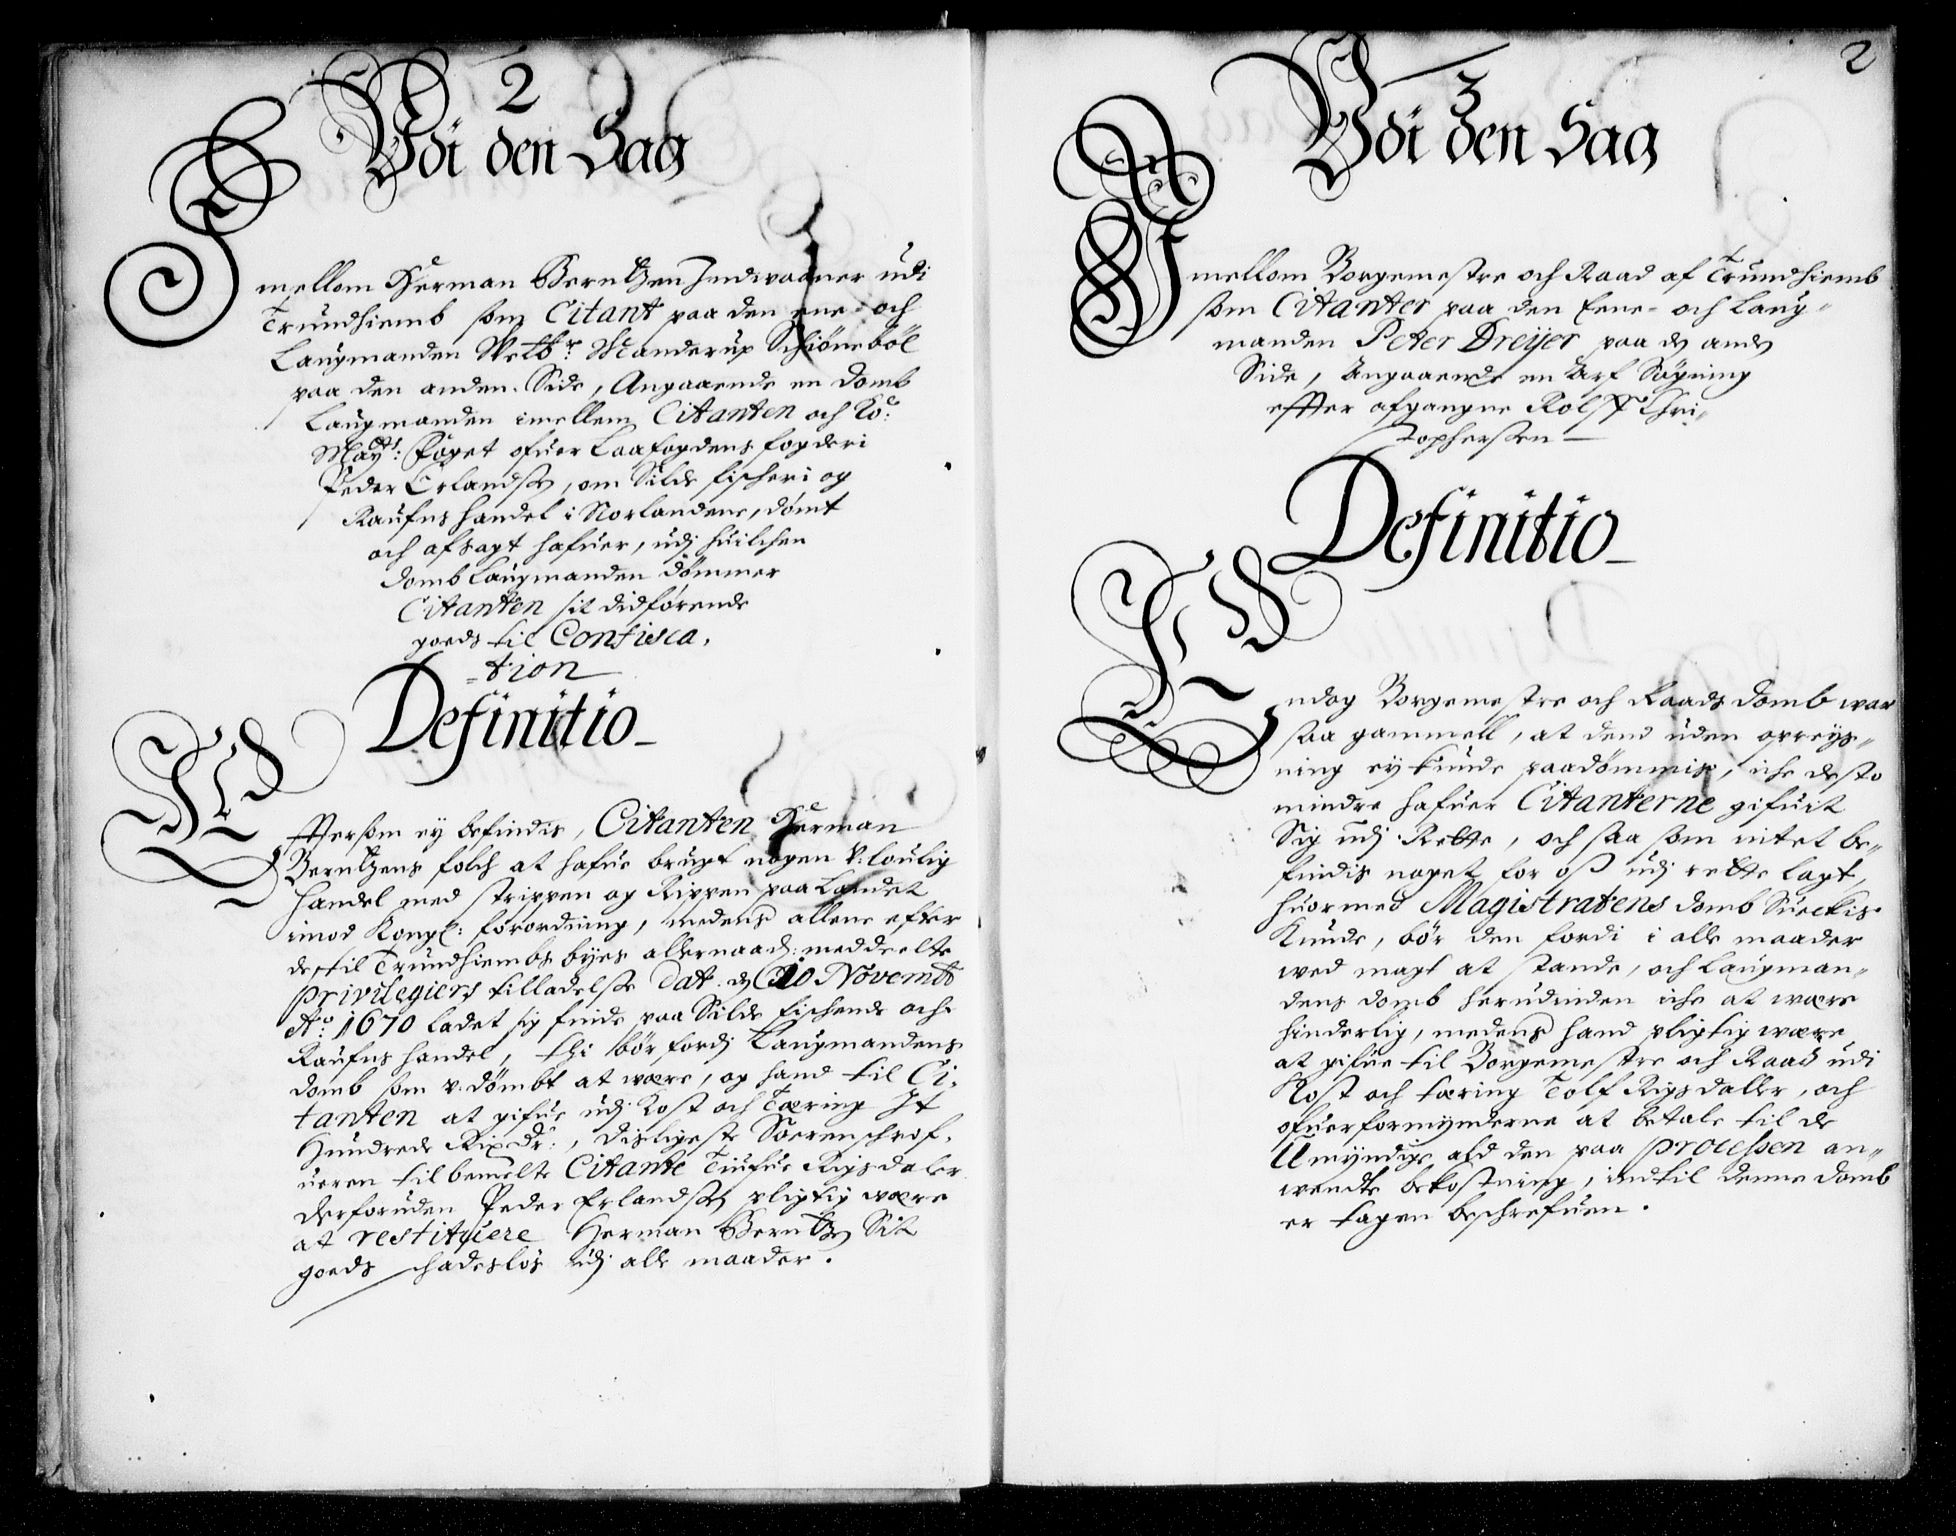 2
Vdi den Sag
Imellom Herman Berntzen Indwaaner udi
Trundhiemb som Citant paa den ene och
Laugmanden Welbr. Manderup Schiönneböl
paa den anden Side, Angaaende en domb
Laugmanden imellem Citanten och Ko:
Maytz: Foget ofuer Laafogdens fogderi
Peder Erlandss, om Silde fischeri og
Raufns handel i Norlandene, dömt
och afsagt hafuer, udj huilchen
domb Laugmanden dömmer
Citanten sit didförende
goeds til Confisca,
=tion
Definitio
Efftersom ey befindis, Citanten Herman
Berntzens folch at hafue brugt nogen V:loulig
handel med strippen og Kippen paa Landet
imod Kongl: forordning, medens allene efter
de til Trundhiembs byes allernaad: meddeelte
Privilegiers tilladelsse Dat. d. 10 Novemb
Ao: 1670 ladet sig finde paa Silde fischende och
Raufns handel, thi bör fordj Laugmandens
domb som v:dömbt at were, og hand til Ci,
tanten at gifue udj Kost och Tæring It
Hundrede Rixdr:, disligeste Sörenschrif,
ueren til bemelte Citante Tiufue Rigsdaler
derforuden Peder Erlandss pligtig were
at restituere Herman Berntz Sit
goeds schadeslös udj alle maader.
2
3
Vdi den Sag
Imellom Borgemestre och Raad af Trundhiemb
som Citanter paa den Eene- och Laug-
manden Peter Dreyer paa d. and.
Side, Angaaende en Arf Søgning
effter afgangne Rolff Chri-
stophersen
Definitio
Endog Borgemestre och Raads domb war
saa gammell, at dend uden opreys-
ning ey kunde paadömmis, iche desto
mindre hafuer Citanterne gifuit
Sig udj Rette, och saa som intet be-
findis noget for oss udj rette lagt,
huormed Magistratens domb Sueckis
Kunde, bör den fordi i alle maader
wed magt at stande, och Laugman-
dens domb herudinden iche at were
hinderlig, medens hand pligtig were
at gifue til Borgemestre och Raad udi
Kost och tæring Tolf Rigsdaller, och
ofuerformynderne at betale til de
Umyndige ald den paa Processen an-
wendte bekostning, indtil denne domb
er tagen beschrefuen.